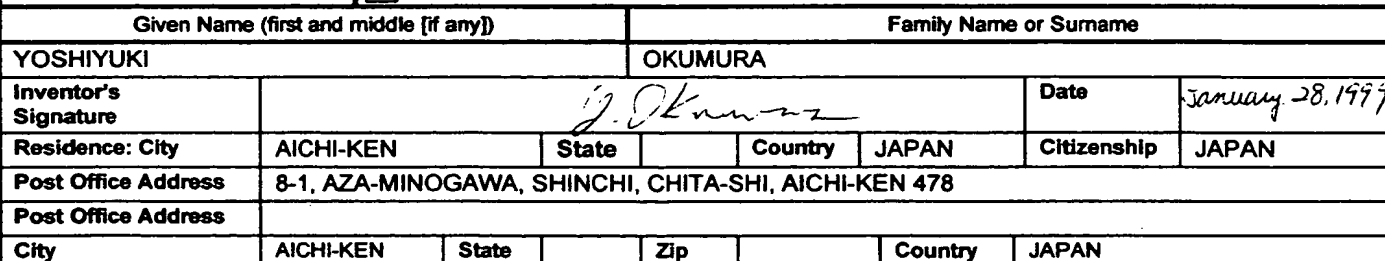 Given Name (first and middle [if any]) Family Name or Surname
YOSHIYUKI OKUMURA
Inventor's Signature Y. Okumura Date January 28, 1999
Residence: City AICHI-KEN State Country JAPAN Citizenship JAPAN
Post Office Address 8-1, AZA-MINOGAWA, SHINCHI, CHITA-SHI, AICHI-KEN 478
Post Office Address
City AICHI-KEN State Zip Country JAPAN